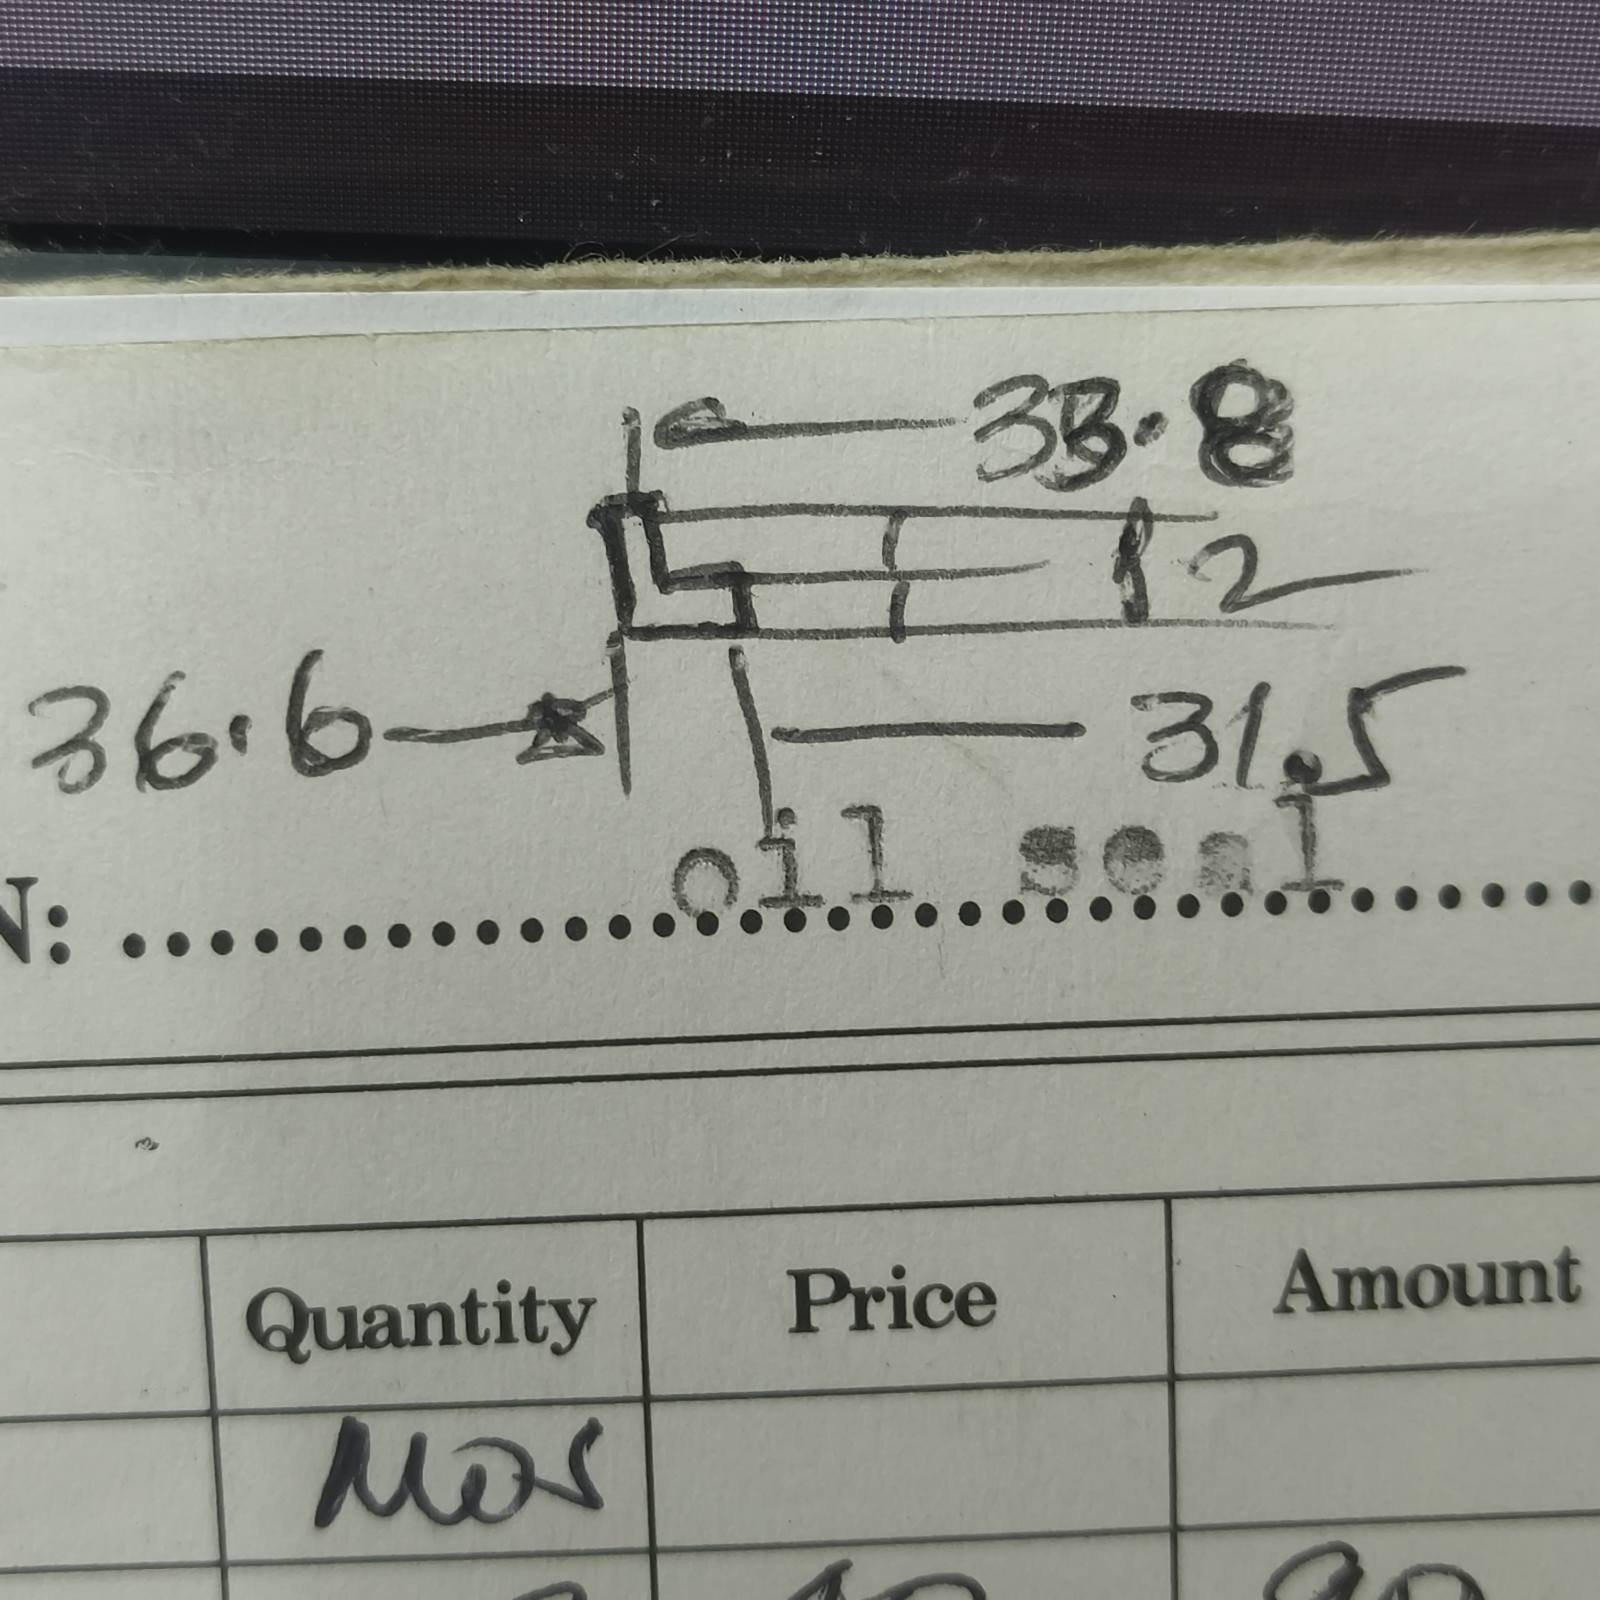 33.8
2
36.6 31.5
oil seal
N:
Quantity Price Amount
Nos